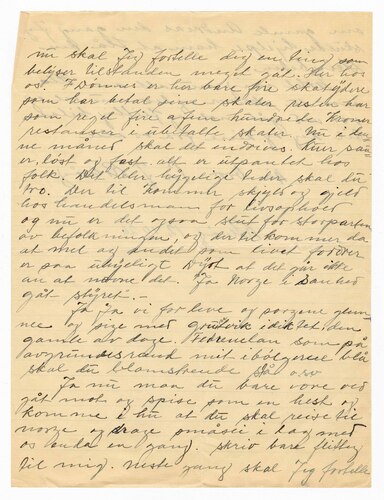 nu skal Jeg fortelle dig en ting som
belyser tilstanden meget gåt. Her hos
ost i Dønnes er her bare fire skatydere
som har betal sine skater resten har
som regel fire a fem hundride Kroner
restanser i ubetalte skater. Nu i den
ne måned skal det indrives. Hver sau
er, löst og fast alt er utpantet hos
folk. Det blir hyggelige tider skal du
tro. Der til kommer skyld og gjeld
hos handelsman for livsophold
og nu er det ogsaa slut for storparten
av befolkningen, og der til kommer da
at mel og andet som livet fordrer
er saa uhyggelig Dyrt at det går ikke
an at nevne det. Ja Norge i Danked
gåt styret. –
Ja Ja vi får leve og porgene glem
me og sige med gruthvik i diktet den
gamle av dage. Fedrenelan som på
avgrundsrand mit i bölgerne blå
skal du blomstrende stå o.s.v
Ja nu man du bare vore ved
gåt mot og spise som en hest og
komme i hu at du skal reise til
norge og drage småsei i lag med
os enda en gang. skriv bare flittig
til mig. neste gang skal Jeg fortelle